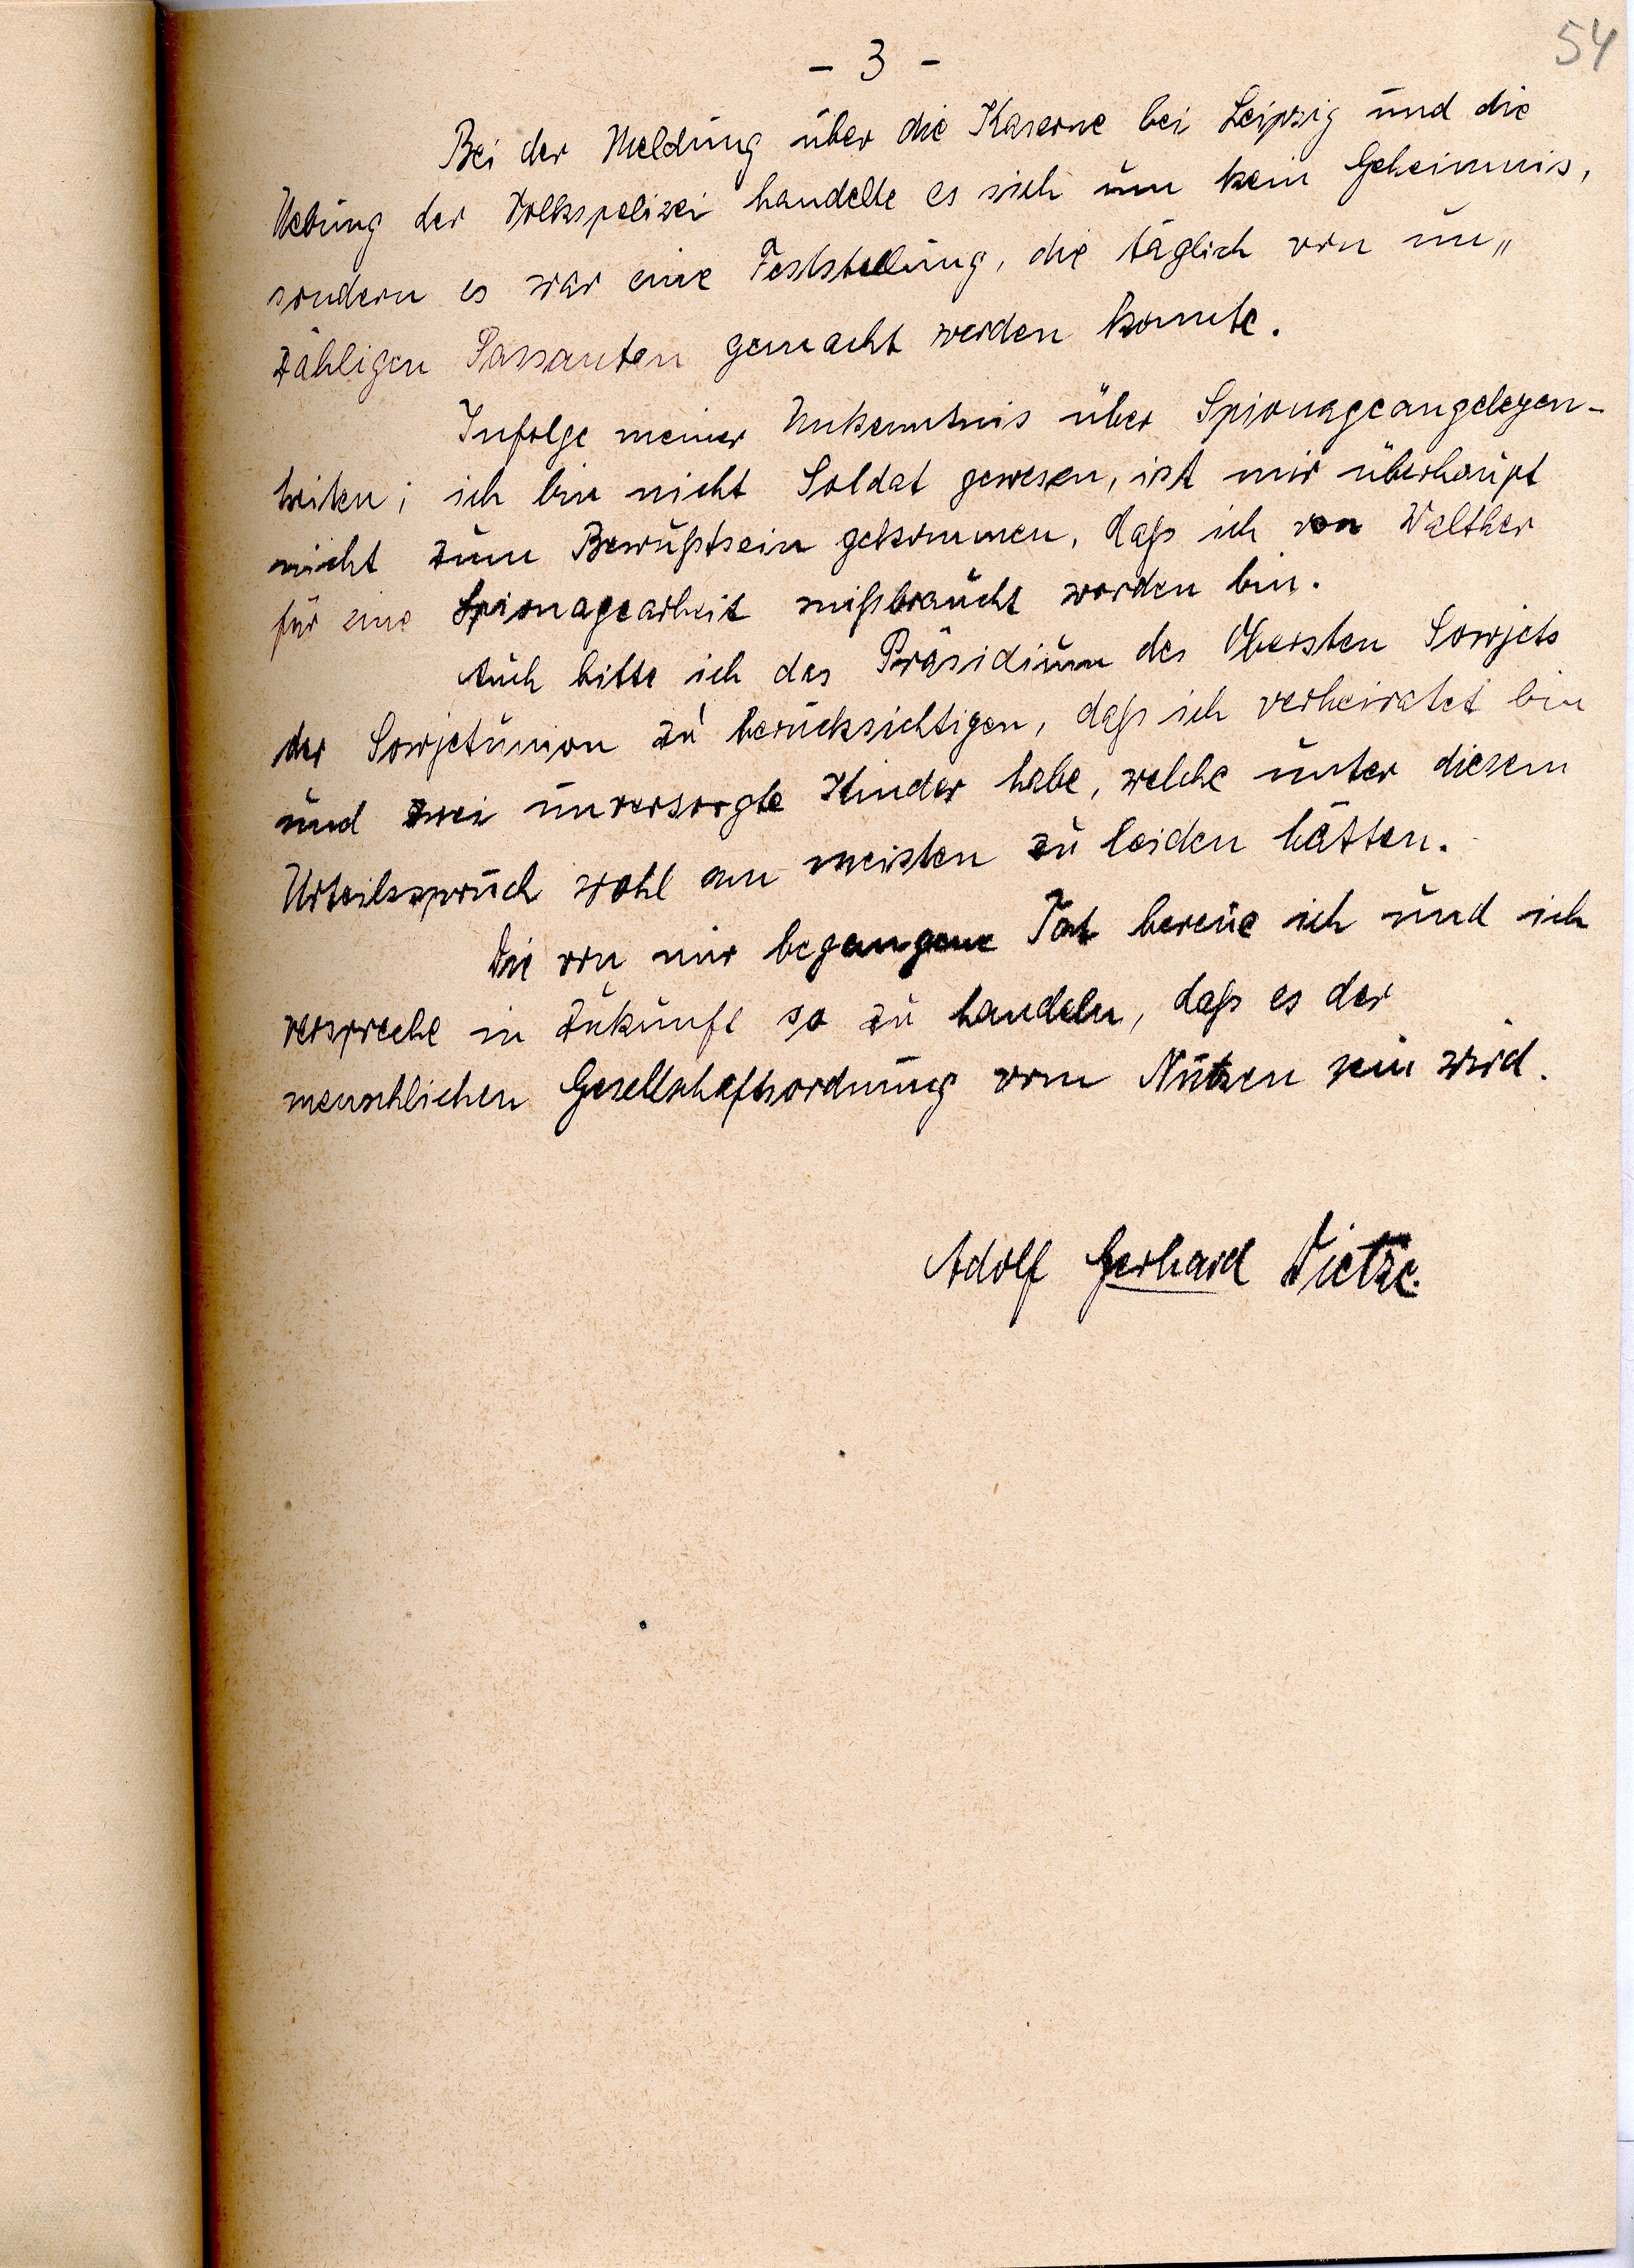 54
- 3 -
Bei der Meldung über die Kaserne bei Leipzig und die
Uebung der Volkspolizei handelte es sich um kein Geheimnis,
sondern es war eine Feststellung, die täglich von un„
zähligen Passanten gemacht werden konnte.
Infolge meiner Unkenntnis über Spionageangelegen-
heiten; ich bin nicht Soldat gewesen, ist mir überhaupt
nicht zum Bewußtsein gekommen, daß ich von Walther
für eine Spionagearbeit mißbraucht worden bin.
Auch bitte ich das Präsidium des Obersten Sowjets
der Sowjetunion zu berücksichtigen, daß ich verheiratet bin
und zwei unversorgte Kinder habe, welche unter diesem
Urteilsspruch wohl am meisten zu leiden hätten.
Die von mir begangene Tat bereue ich und ich
verspreche in Zukunft so zu handeln, daß es der
menschlichen Gesellschaftsordnung vom Nutzen sein wird.
Adolf Gerhard Dietze.